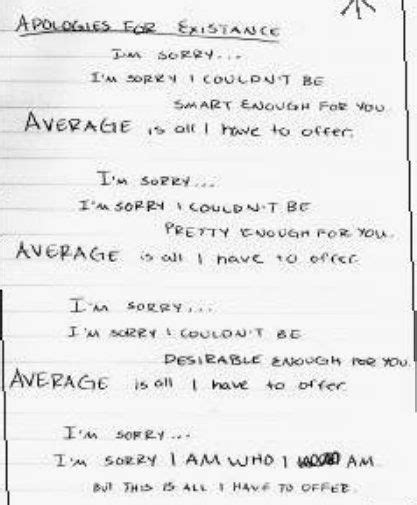 APOLOGIES FOR EXISTANCE
I'M SORRY...
I'M SORRY I COULDN'T BE
SMART ENOUGH FOR YOU.
AVERAGE is all I have to offer.
I'M SORRY...
I'M SORRY I COULDN'T BE
PRETTY ENOUGH FOR YOU.
AVERAGE is all I have to offer.
I'M SORRY...
I'M SORRY I COULDN'T BE
DESIRABLE ENOUGH FOR YOU.
AVERAGE is all I have to offer.
I'M SORRY...
I'M SORRY I AM WHO I AM.
BUT THIS IS ALL I HAVE TO OFFER.